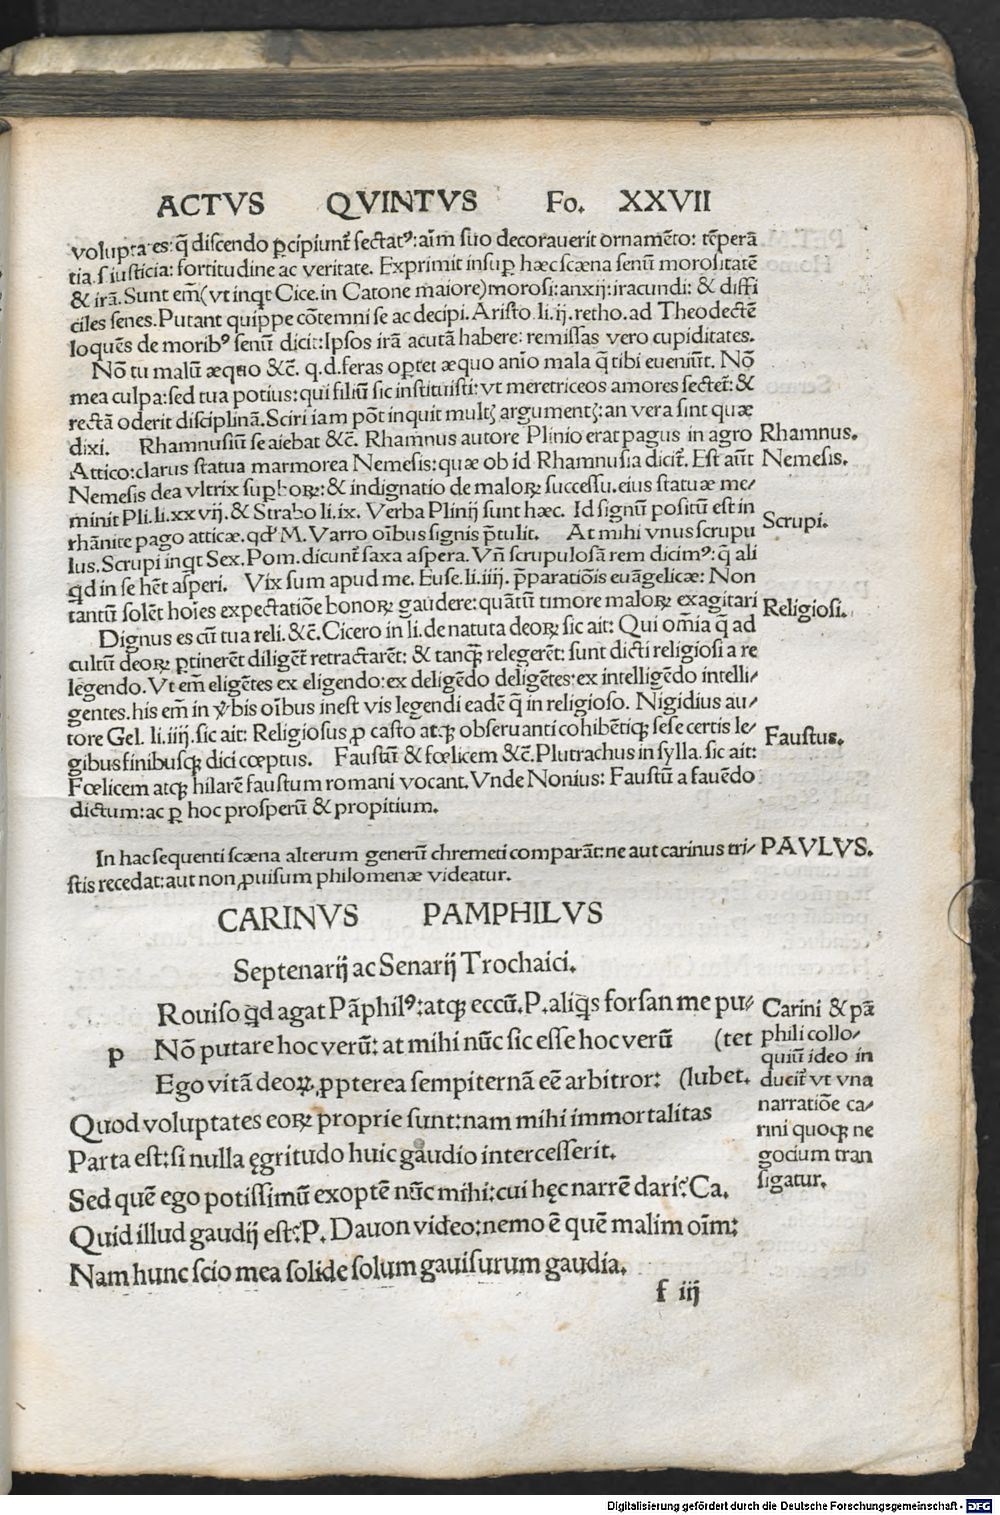 ACTVS QVINTVS Fo. XXVII
volupta es: q̃ discendo ꝑcipiunt̃ sectatꝰ: aĩm suo decorauerit ornamẽto: tẽperã
tia. s. iusticia: fortitudine ac veritate. Exprimit insuꝑ hæc scæna senũ morositatẽ
& irã. Sunt em̃ (vt inqt Cice. in Catone maiore) morosi: anxij: iracundi: & diffi
ciles senes. Putant quippe cõtemni se ac decipi. Aristo. li. ij. retho. ad Theodectẽ
loquẽs de moribꝰ senũ dicit: Ipsos irã acutã habere: remissas vero cupiditates.
Nõ tu malũ æquo &c̃. q. d. feras oꝑtet æquo anĩo mala q̃ tibi eueniũt. Nõ
mea culpa: sed tua potius: qui filiũ sic instituisti: vt meretriceos amores sectet̃: &
rectã oderit disciplinã. Sciri iam põt inquit multꝭ argumentꝭ: an vera sint quæ
dixi. Rhamnusiũ se aiebat &c̃. Rhamnus autore Plinio erat pagus in agro
Rhamnus.
Attico: clarus statua marmorea Nemesis: quæ ob id Rhamnusia dicit̃. Est aũt
Nemesis.
Nemesis dea vltrix suꝑboꝝ: & indignatio de maloꝝ successu. eius statuæ me/
minit Pli. li. xxvij. & Strabo li. ix. Verba Plinij sunt hæc. Id signũ positũ est in
rhãnite pago atticæ. qd' M. Varro oĩbus signis p̃tulit. At mihi vnus scrupu
Scrupi.
lus. Scrupi inqt Sex. Pom. dicunt̃ saxa aspera. Vñ scrupulosã rem dicimꝰ: q̃ ali
qd in se hẽt asperi. Vix sum apud me. Euse. li. iiij. p̃paratiõis euãgelicæ: Non
tantũ solẽt hoĩes expectatiõe bonoꝝ gaudere: quãtũ timore maloꝝ exagitari
Religiosi.
Dignus es cũ tua reli. &c̃. Cicero in li. de natuta deoꝝ sic ait: Qui om̃ia q̃ ad
cultũ deoꝝ ꝑtinerẽt diligẽt̃ retractarẽt: & tanꝗ̃ relegerẽt: sunt dicti religiosi a re
legendo. Vt em̃ eligẽtes ex eligendo: ex deligẽdo deligẽtes: ex intelligẽdo intelli/
gentes. his em̃ in v̾bis oĩbus inest vis legendi eadẽ q̃ in religioso. Nigidius au/
tore Gel. li. iiij. sic ait: Religiosus ꝓ casto atqꝫ obseruanti cohibẽtiqꝫ sese certis le/
Faustus.
gibus finibusqꝫ dici cœptus. Faustũ & fœlicem &c̃. Plutrachus in sylla. sic ait:
Fœlicem atqꝫ hilarẽ faustum romani vocant. Vnde Nonius: Faustũ a fauẽdo
dictum: ac ꝑ hoc prosperũ & propitium.
In hac sequenti scæna alterum generũ chremeti comparãt: ne aut carinus tri/
PAVLVS.
stis recedat: aut non ꝓuisum philomenæ videatur.
CARINVS PAMPHILVS
Septenarij ac Senarij Trochaici.
p
Rouiso qd agat Pãphilꝰ: atqꝫ eccũ. P. aliqs forsan me pu/
Nõ putare hoc verũ: at mihi nũc sic esse hoc verũ (tet
Ego vitã deoꝝ ꝓpterea sempiternã eẽ arbitror: (lubet.
Quod voluptates eoꝝ proprie sunt: nam mihi immortalitas
Parta est: si nulla ęgritudo huic gaudio intercesserit.
Sed quẽ ego potissimũ exoptẽ nũc mihi: cui hęc narrẽ dari? Ca.
Quid illud gaudij est? P. Dauon video: nemo ẽ quẽ malim oĩm:
Nam hunc scio mea solide solum gauisurum gaudia.
Carini & pã
phili collo/
quiũ ideo in
ducit̃ vt vna
narratiõe ca/
rini quoqꝫ ne
gocium tran
sigatur.
f iij
Digitalisierung gefördert durch die Deutsche Forschungsgemeinschaft - DFG